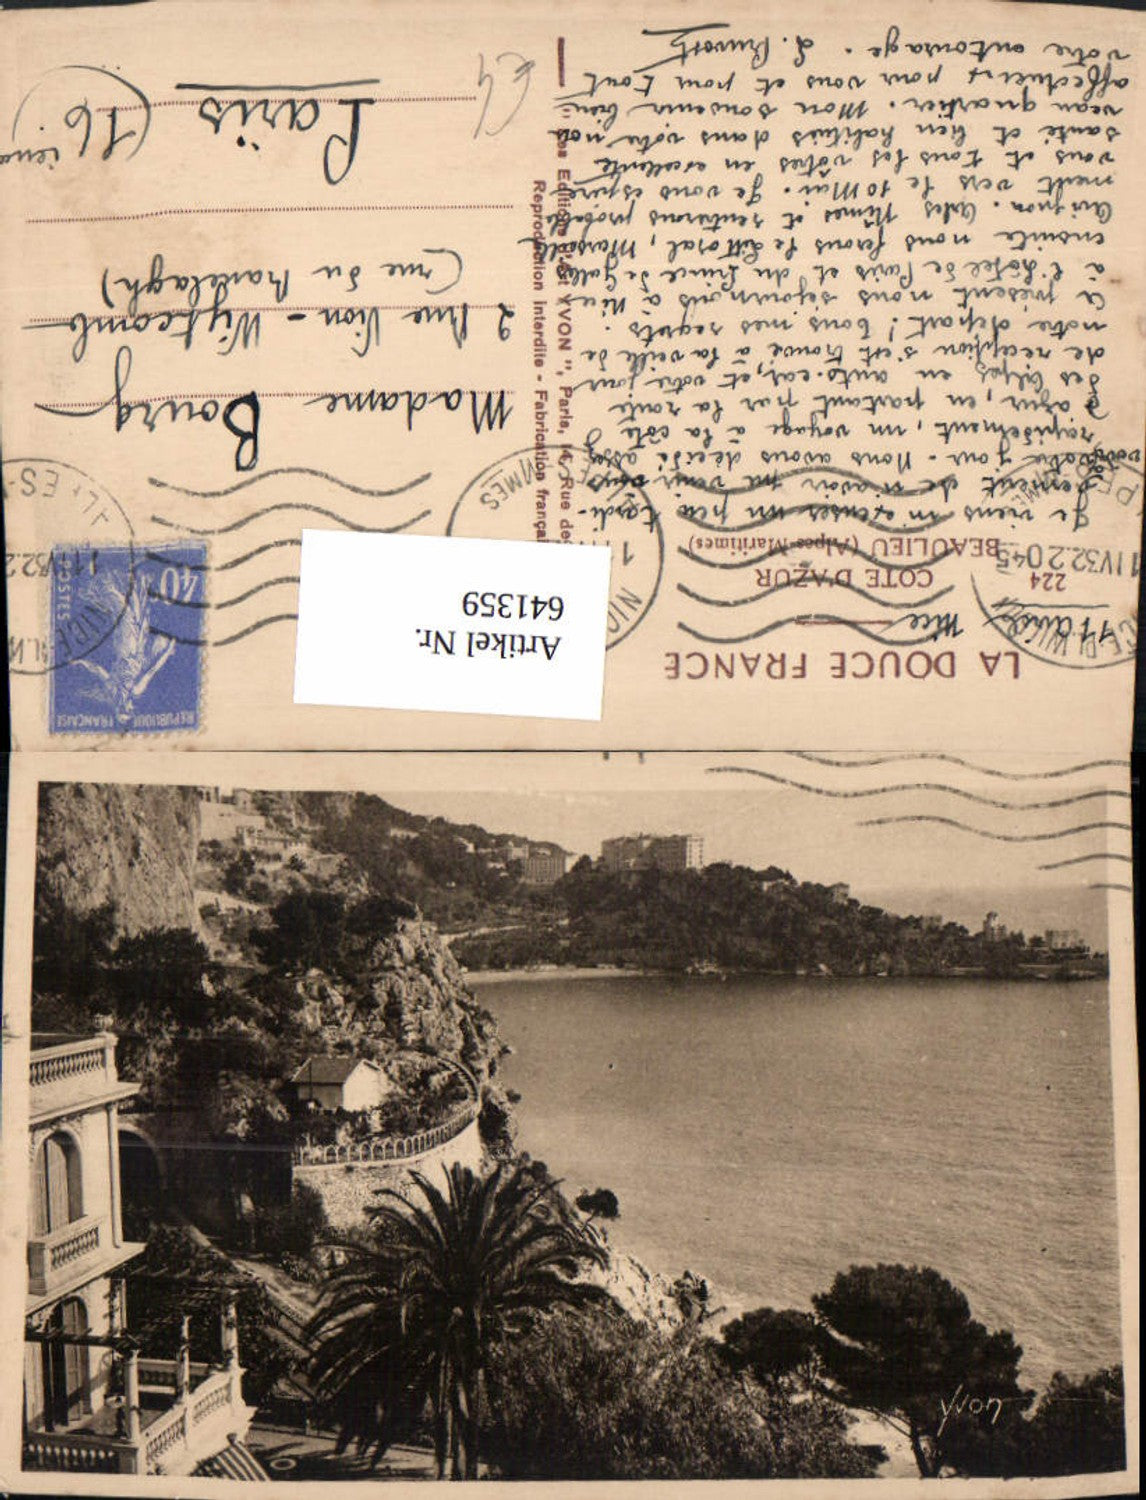 LA DOUCE FRANCE
Nice 11 avril
224
COTE D'AZUR
BEAULIEU (Alpes-Maritimes)
Je viens m'excuser un peu tardi-
vement de n'avoir pu venir
votre jour. Nous avons décidé assez
rapidement, un voyage à la côte
d'azur, en partant par la route
des Alpes en auto-car, et votre jour
de réception s'est trouvé à la veille de
notre départ! Tous mes regrets.
A présent nous séjournons à Nice
à l'hôtel de Paris et du Prince de Galles
ensuite nous ferons le littoral, Marseille
Avignon. Arles Nîmes et rentrerons probable
ment vers le 10 Mai. Je vous espère
vous et tous les vôtres en excellente
santé et bien habitués dans votre nou
veau quartier. Mon souvenir bien
affectueux pour vous et pour tout
votre entourage. L. Pruvost
Les Editions d'Art "YVON", Paris, 14, Rue de
Reproduction Interdite - Fabrication français
Artikel Nr.
641359
REPUBLIQUE FRANÇAISE
POSTES
40c
NICE
11 IV 32 20 45
Madame Bourg
2 Rue Vion-Whitcomb
(rue du Ranelagh)
Paris
(16 ième)
€4
Yvon